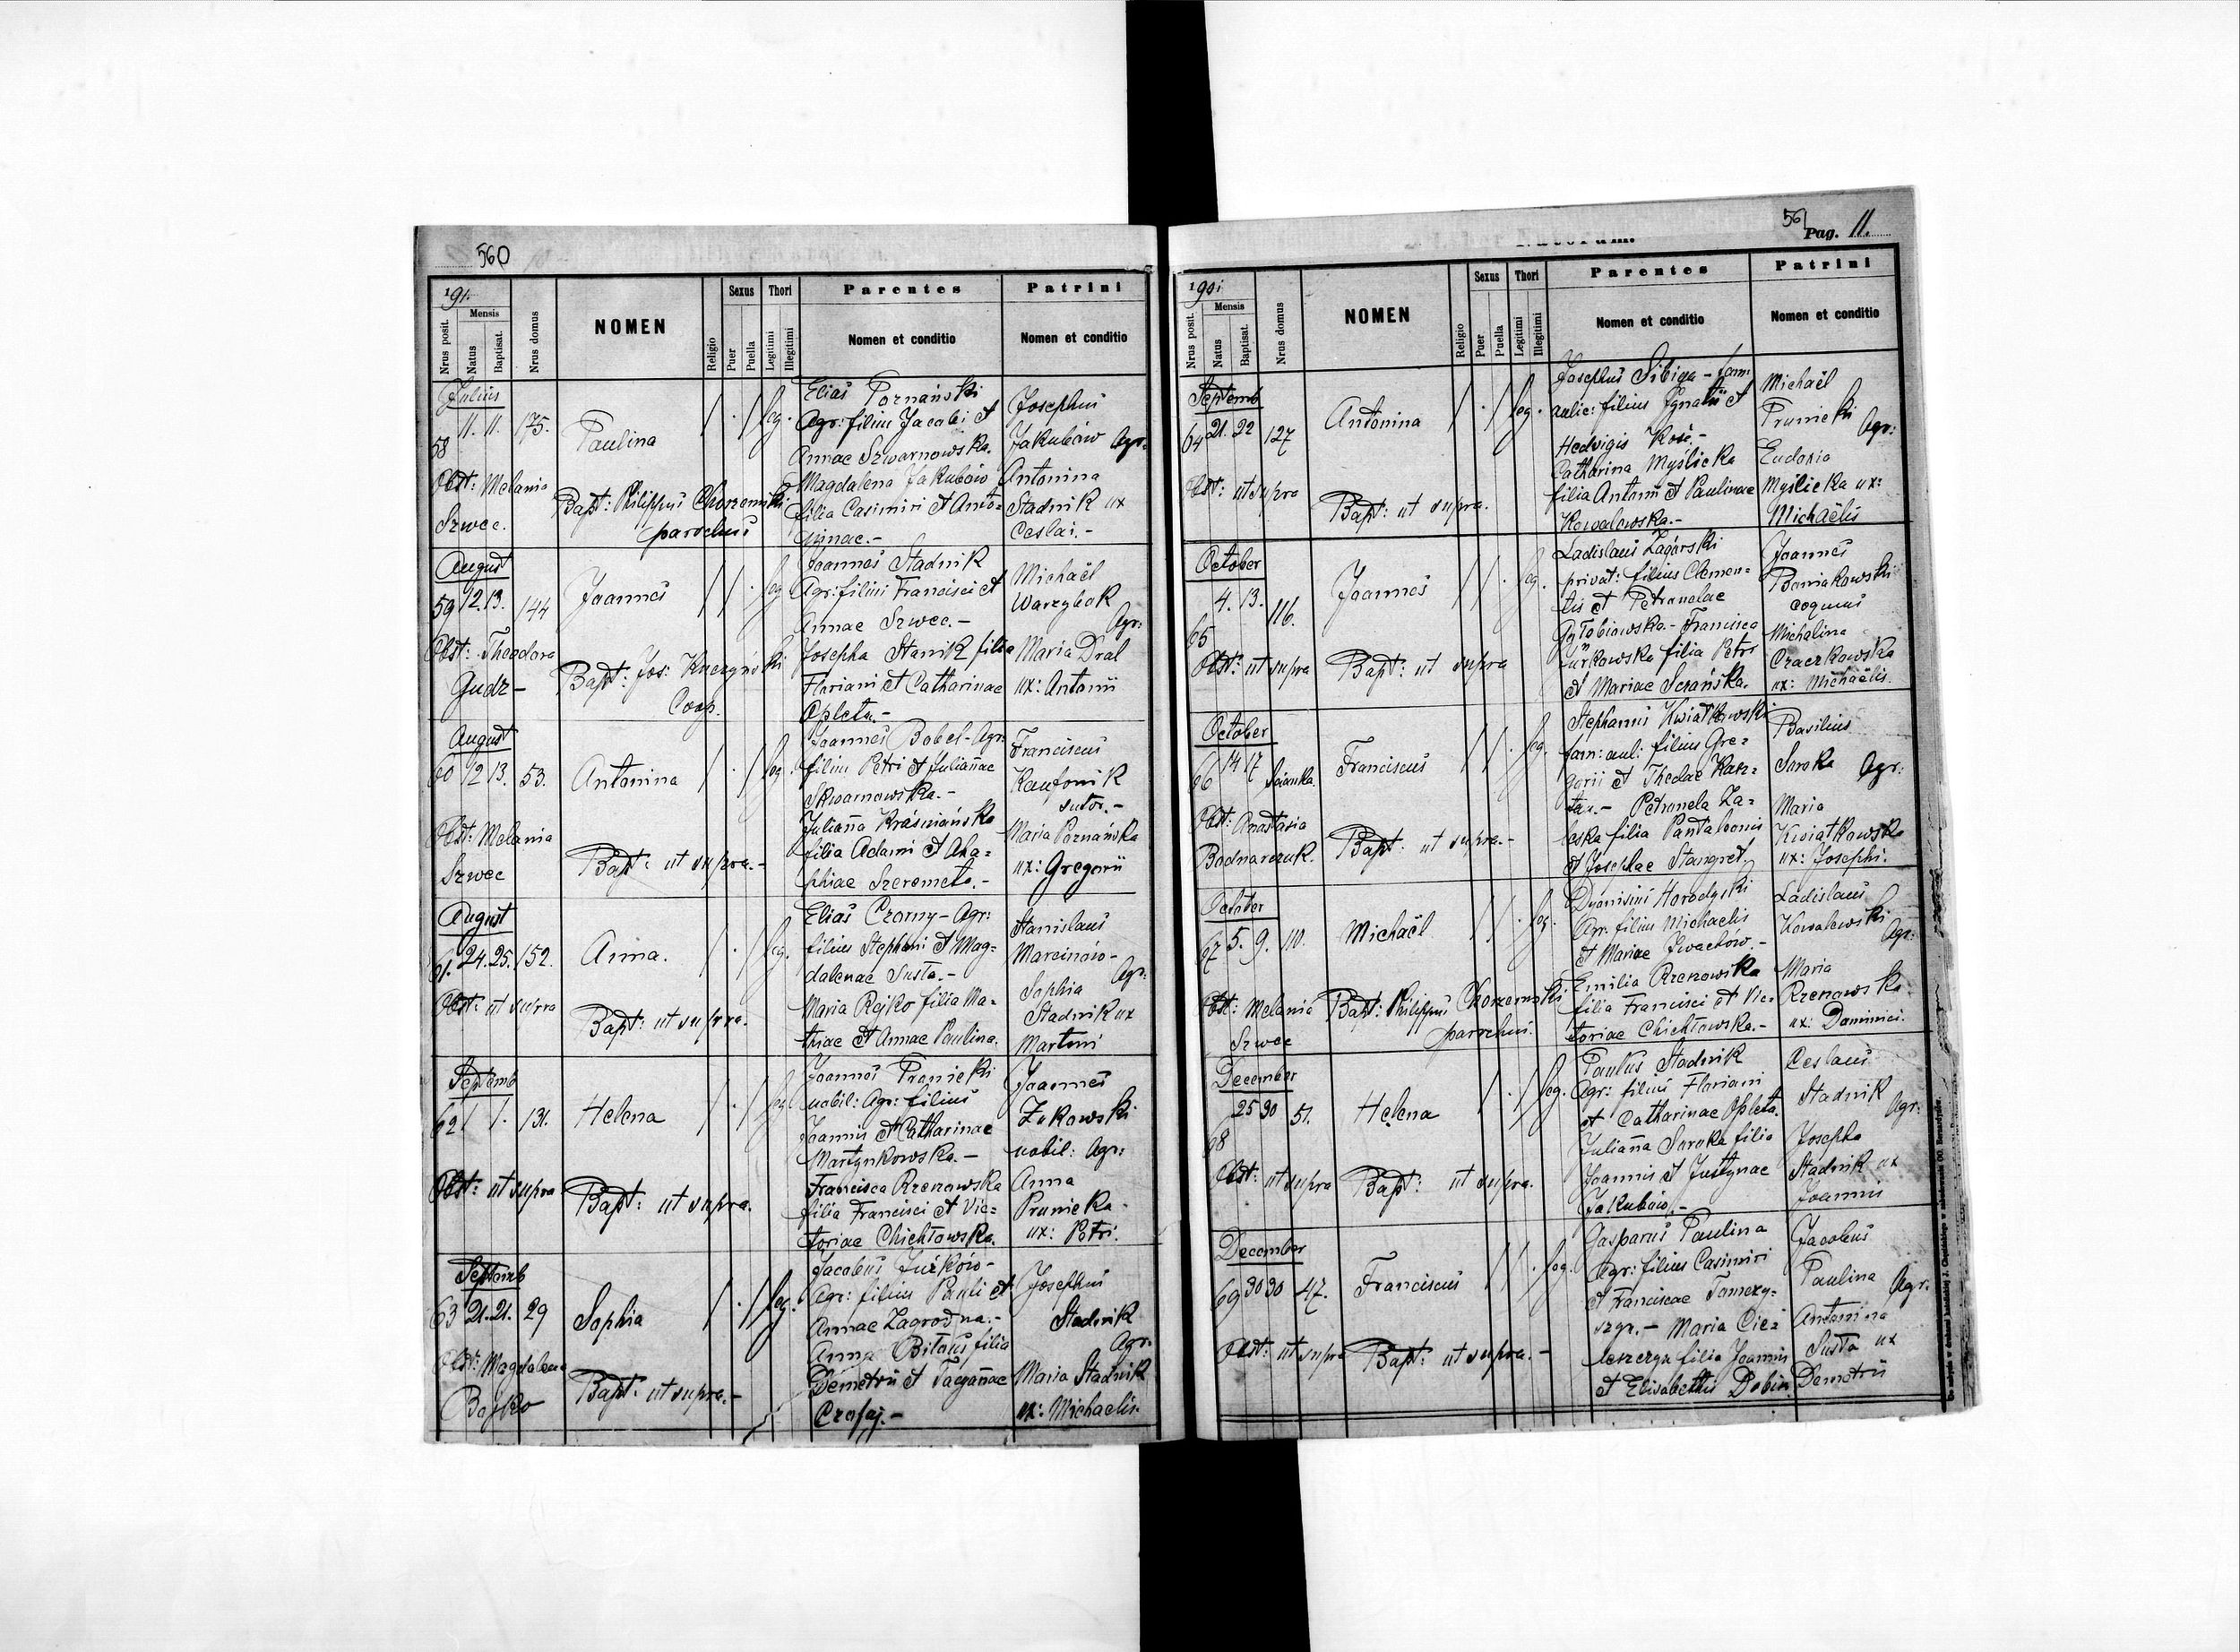 560
191.
Nrus posit.
Mensis
Natus
Baptisat.
Nrus domus
NOMEN
Religio
Sexus
Puer
Puella
Thori
Legitimi
Illegitimi
Parentes
Nomen et conditio
Patrini
Nomen et conditio
Julius
58 11. 11. 175.
Paulina
leg.
Elias Poznański
Agr: filius Jacobi et
Annae Szwarnowska.
Magdalena Jakubów
filia Casimiri et Anto=
ninae.-
Josephus
Jakubów Agr:
Antonina
Stadnik ux
Ceslai.-
Obst: Melania
Szwec.
Bapt: Philippus Chorzemski
parochus
August
59 12. 13. 144
Joannes
leg
Joannes Stadnik
Agr: filius Francisci et
Annae Szwec.-
Josepha Stanik filia
Floriani et Catharinae
Opleta.-
Michaël
Warzybok
Agr:
Maria Dral
ux: Antonii
Obst: Theodora
Gudz-
Bapt: Jos: Kuczyński
Coop.
August
60 12 13. 53.
Antonina
leg.
Joannes Bobel-Agr:
filius Petri et Julianae
Skwarnowska.-
Juliana Kraśniańska
filia Adami et Aha=
phiae Szeremeta.-
Franciscus
Kaufonik
sutor.-
Maria Poznańska
ux: Gregorii
Obst: Melania
Szwec
Bapt: ut supra.-
August
61. 24. 25. 152.
Anna.
leg.
Elias Czorny-Agr:
filius Stephani et Mag=
dalenae Susta.-
Maria Rejko filia Ma=
thiae et Annae Paulina.
Stanislaus
Marcinów-
Agr:
Sophia
Stadnik ux
Martini
Obst: ut supra
Bapt: ut supra.
Septemb
62 1 1. 131.
Helena
leg.
Joannes Pronicki
nobil: Agr: filius
Joannis et Catharinae
Martynkowska.-
Francisca Rzenowska
filia Francisci et Vic=
toriae Chichłowska.
Joannes
Żukowski
nobil: Agr:
Anna
Prunicka
ux: Petri.
Obst: ut supra
Bapt: ut supra.
Septemb
63 21. 21. 29
Sophia
leg.
Jacobus Jurków-
Agr: filius Pauli et
Annae Zagrodna.-
Anna Bitous filia
Demetrii et Tacyanae
Czofaj.-
Josephus
Stadnik
Agr:
Maria Stadnik
ux: Michaelis.
Obst: Magdalena
Bojko
Bapt: ut supra.-
561
Pag. 11.
1901
Nrus posit.
Mensis
Natus
Baptisat.
Nrus domus
NOMEN
Religio
Sexus
Puer
Puella
Thori
Legitimi
Illegitimi
Parentes
Nomen et conditio
Patrini
Nomen et conditio
Septemb
64 21. 22 127
Antonina
leg.
Josephus Sibiga-fam:
aulic: filius Ignatii et
Hedvigis Kość.-
Catharina Myślicka
filia Antonii et Paulinae
Kowalowska.-
Michaël
Prunicki
Agr:
Eudoxia
Myślicka ux:
Michaëlis
Obst: ut supra
Bapt: ut supra.
October
65 4. 13. 116.
Joannes
leg.
Ladislaus Zagórski
privat: filius Clemen=
tis et Petronelae
Gołobiowska.- Francisca
Jurkowska filia Petri
et Mariae Serańska.
Joannes
Boniakowski
coquus
Michalina
Czaczkowska
ux: Michaëlis.
Obst: ut supra
Bapt: ut supra
October
66 14 17 Soianka.
Franciscus
leg.
Stephanus Kwiatkowski
fam: aul: filius Gre=
gorii et Theclae Karz=
tar.- Petronela Za=
leska filia Pantaleonis
et Josephae Stangret.
Basilius
Soroka Agr:
Maria
Kwiatkowska
ux: Josephi.
Obst: Anastasia
Bodnarczuk.
Bapt: ut supra.-
October
67 5. 9. 110.
Michaël
leg.
Dyonisius Horodyski
Agr: filius Michaelis
et Mariae Iwachów.-
Emilia Rzenowska
filia Francisci et Vic=
toriae Chichłowska.-
Ladislaus
Kowalewski
Agr:
Maria
Rzenowska
ux: Dominici.
Obst: Melania
Szwec
Bapt: Philippus Chorzemski
parochus.
December
68 25 30 51.
Helena
leg.
Paulus Stadnik
Agr: filius Floriani
et Catharinae Opleta.
Juliana Soroka filia
Joannis et Justynae
Jakubów.-
Ceslaus
Stadnik
Agr:
Josepha
Stadnik ux
Joannis
Obst: ut supra
Bapt: ut supra.
December
69 30 30 47.
Franciscus
leg.
Gasparus Paulina
Agr: filius Casimiri
et Franciscae Tomczy=
szyn.- Maria Cie=
leszczyn filia Joannis
et Elisabethis Dobin.
Jacobus
Paulina Agr:
Antonina
Susta ux
Demetrii
Obst: ut supra
Bapt: ut supra.-